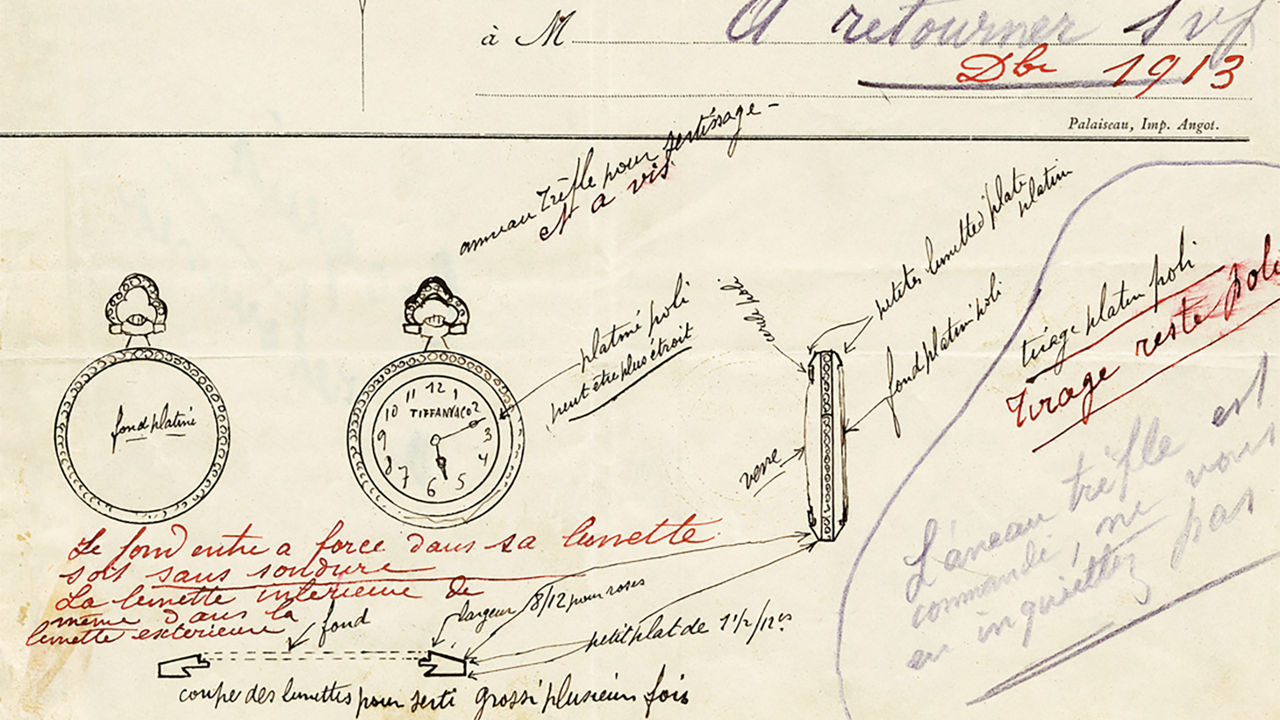 à M
A retourner svp
Dbr 1913
Palaiseau, Imp. Angot.
anneau trèfle pour sertissage -
et a vis
petites lunettes plate
platin
fond platin poli
tirage platin poli
Tirage reste poli
platiné poli
peut être plus étroit
fond platiné
11 12 1
10 2
TIFFANY & CO
9 3
8 4
7 6 5
verre
L'anneau trèfle est
commandé, ne vous
en inquiettez pas
Le fond entre a force dans sa lunette
soit sans soudure
La lunette interieure de
même dans la
lunette exterieure
fond
largeur 8/12 pour roses
petit plat de 1 1/2/12es
coupe des lunettes pour serti grossi plusieurs fois